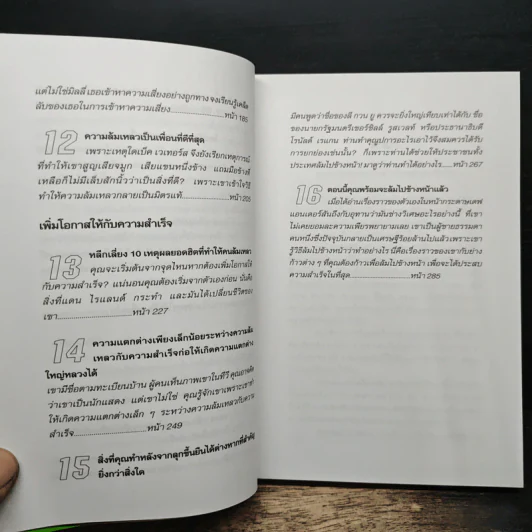 แต่ไม่ใช่มิลลี่ เธอเข้าหาความเสี่ยงอย่างถูกทาง จงเรียนรู้เคล็ด
ลับของเธอในการเข้าหาความเสี่ยง...................หน้า 185
12 ความล้มเหลวเป็นเพื่อนที่ดีที่สุด
เพราะเหตุใดเบ็ค เวเทอร์ส จึงยังเรียกเหตุการณ์
ที่ทำให้เขาสูญเสียจมูก เสียแขนหนึ่งข้าง แถมมืออีกข้างที่
เหลือก็ไม่มีเล็บสักนิ้วว่าเป็นสิ่งที่ดี? เพราะเขาเข้าใจวิธี
ทำให้ความล้มเหลวกลายเป็นมิตรแท้.....................หน้า 205
เพิ่มโอกาสให้กับความสำเร็จ
13 หลีกเลี่ยง 10 เหตุผลยอดฮิตที่ทำให้คนล้มเหลว
คุณจะเริ่มต้นจากจุดไหนหากต้องเพิ่มโอกาสให้
กับความสำเร็จ? แน่นอนคุณต้องเริ่มจากตัวเองก่อน นั่นคือ
สิ่งที่แดน ไรแลนด์ กระทำ และมันได้เปลี่ยนชีวิตของ
เขา.........................หน้า 227
14 ความแตกต่างเพียงเล็กน้อยระหว่างความล้ม
เหลวกับความสำเร็จก่อให้เกิดความแตกต่าง
ใหญ่หลวงได้
เขามีชื่อตามทะเบียนบ้าน ผู้คนเห็นภาพเขาในทีวี คุณอาจคิด
ว่าเขาเป็นนักแสดง แต่เขาไม่ใช่ คุณรู้จักเขาเพราะเขาทำ
ให้เกิดความแตกต่างเล็ก ๆ ระหว่างความล้มเหลวกับความ
สำเร็จ.........................หน้า 249
15 สิ่งที่คุณทำหลังจากลุกขึ้นยืนได้ต่างหากที่สำคัญ
ยิ่งกว่าสิ่งใด
มีคนพูดว่าชื่อของลี กวน ยู ควรจะยิ่งใหญ่เทียบเท่าได้กับ ชื่อ
ของนายกรัฐมนตรีเชอร์ชิลล์ รูสเวลท์ หรือประธานาธิบดี
โรนัลด์ เรแกน ท่านทำคุณูปการอะไรเอาไว้จึงสมควรได้รับ
การยกย่องเช่นนั้น? ก็เพราะท่านได้ช่วยให้ประชาชนทั้ง
ประเทศล้มไปข้างหน้า! มาดูว่าท่านทำได้อย่างไร....หน้า 267
16 ตอนนี้คุณพร้อมจะล้มไปข้างหน้าแล้ว
เมื่อได้อ่านเรื่องราวของตัวเองในหน้ากระดาษเดฟ
แอนเดอร์สันถึงกับอุทานว่ามันช่างวิเศษอะไรอย่างนี้ ที่เขา
ไม่เคยยอมละความเพียรพยายามเลย เขาเป็นผู้ชายธรรมดา
คนหนึ่งซึ่งปัจจุบันกลายเป็นเศรษฐีร้อยล้านไปแล้วเพราะเขา
รู้วิธีล้มไปข้างหน้าว่าทำอย่างไร นี่คือเรื่องราวของเขากับย่าง
ก้าวต่าง ๆ ที่คุณต้องก้าวเพื่อล้มไปข้างหน้า เพื่อจะได้ประสบ
ความสำเร็จในที่สุด.....................หน้า 285